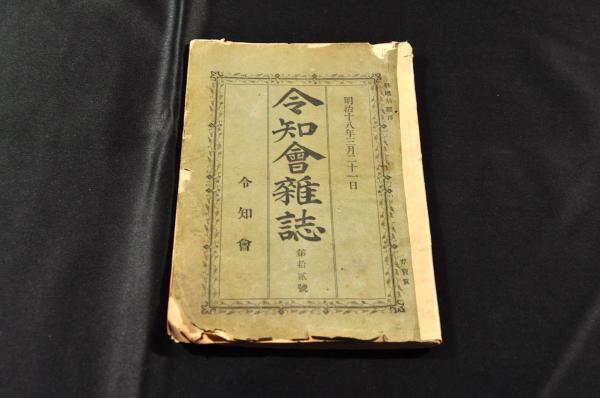 明治十八年三月二十一日
令知會雜誌
第拾貳號
令知會